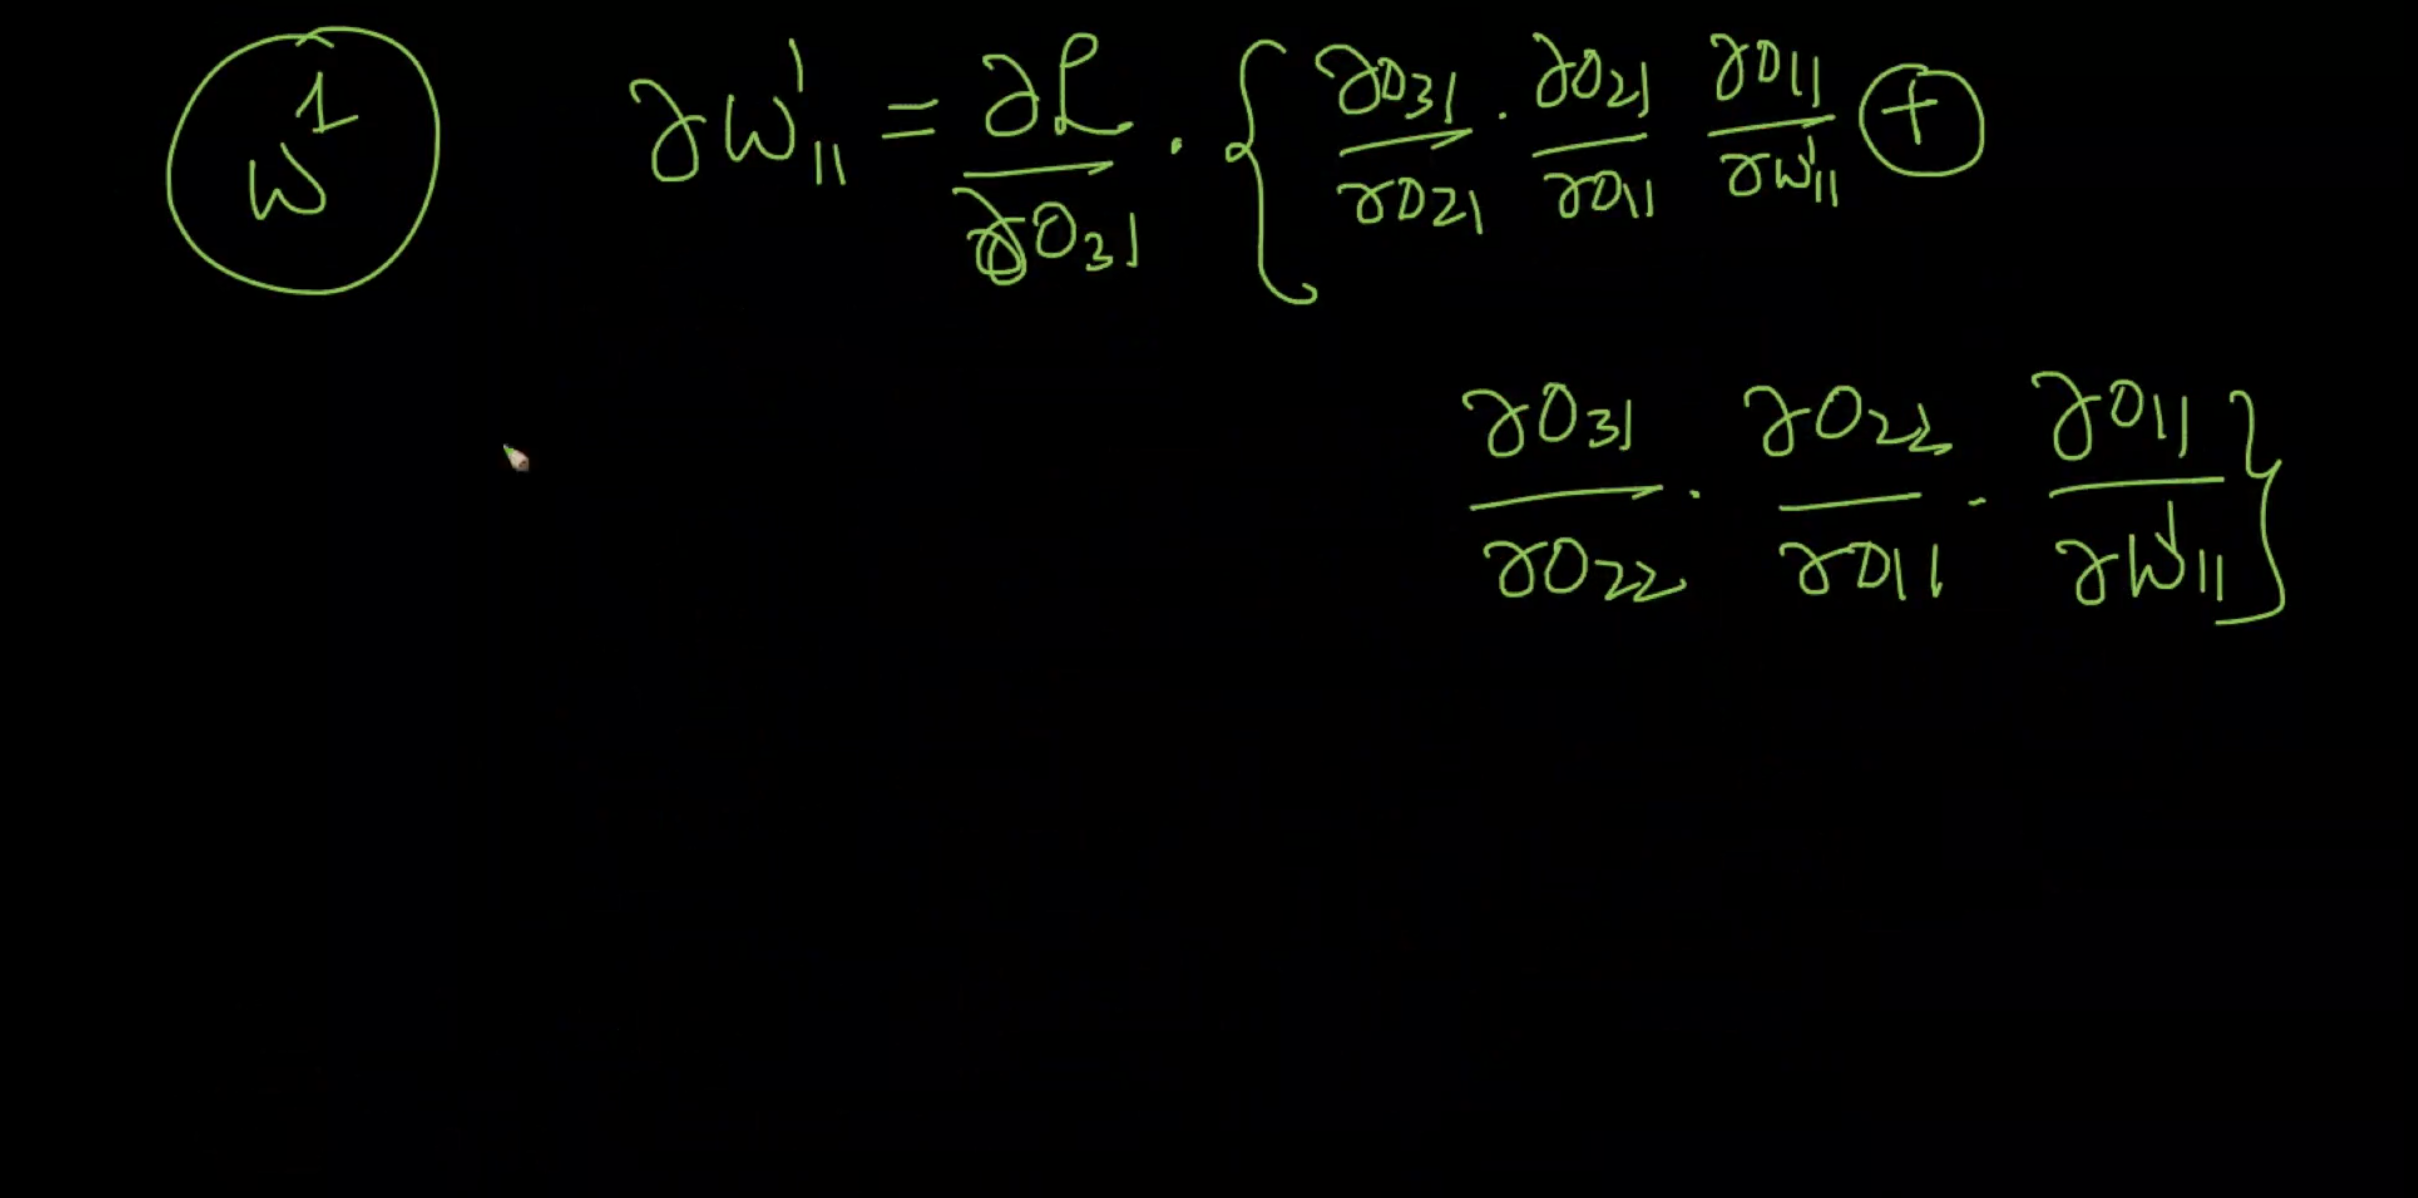 w¹ ∂w¹₁₁ = ∂L/∂O₃₁ · { ∂O₃₁/∂O₂₁ · ∂O₂₁/∂O₁₁ ∂O₁₁/∂w¹₁₁ +
∂O₃₁/∂O₂₂ · ∂O₂₂/∂O₁₁ · ∂O₁₁/∂w¹₁₁ }